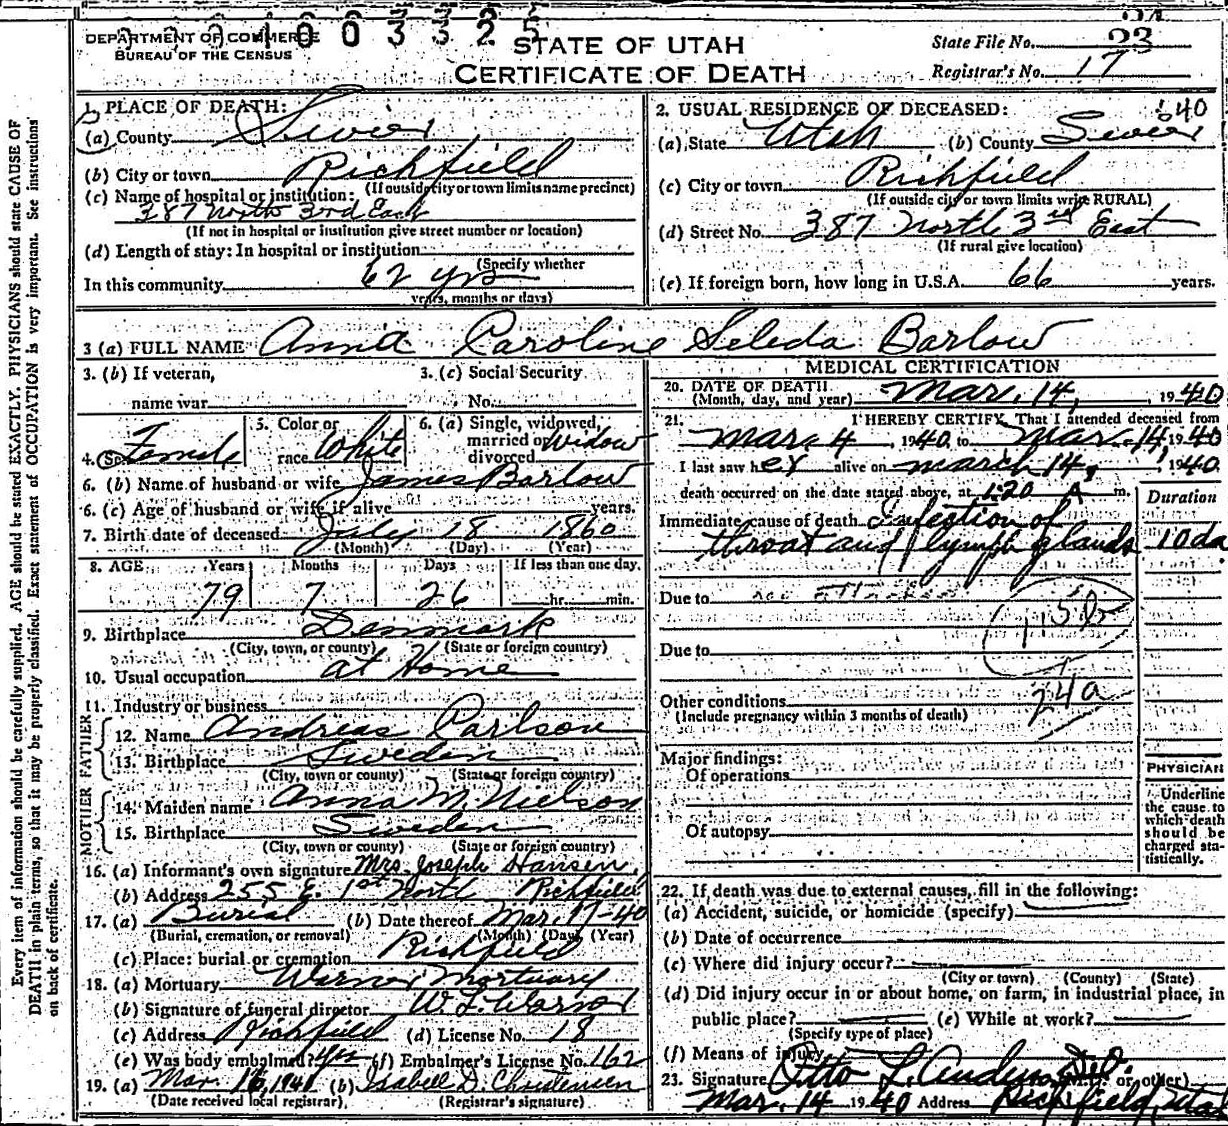 DEPARTMENT OF COMMERCE
BUREAU OF THE CENSUS
STATE OF UTAH
CERTIFICATE OF DEATH
State File No. 23
Registrar's No. 17
1. PLACE OF DEATH:
(a) County Sevier
(b) City or town Richfield
(If outside city or town limits name precinct)
(c) Name of hospital or institution:
387 North 3rd East
(If not in hospital or institution give street number or location)
(d) Length of stay: In hospital or institution
(Specify whether
In this community 62 yrs
years, months or days)
2. USUAL RESIDENCE OF DECEASED: 40
(a) State Utah (b) County Sevier
(c) City or town Richfield
(If outside city or town limits write RURAL)
(d) Street No. 387 North 3rd East
(If rural give location)
(e) If foreign born, how long in U.S.A. 66 years.
3 (a) FULL NAME Anna Caroline Seleda Barlow
3. (b) If veteran,
name war
3. (c) Social Security
No.
4. Sex Female
5. Color or
race White
6. (a) Single, widowed,
married or
divorced Widow
6. (b) Name of husband or wife James Barlow
6. (c) Age of husband or wife if alive years.
7. Birth date of deceased July 18 1860
(Month) (Day) (Year)
8. AGE Years Months Days If less than one day.
79 7 26 hr. min.
9. Birthplace Denmark
(City, town, or county) (State or foreign country)
10. Usual occupation at Home
11. Industry or business
FATHER
12. Name Andreas Carlson
13. Birthplace Sweden
(City, town or county) (State or foreign country)
MOTHER
14. Maiden name Anna M. Nielson
15. Birthplace Sweden
(City, town or county) (State or foreign country)
16. (a) Informant's own signature Mrs. Joseph Hansen.
(b) Address 255 E. 1st North Richfield
17. (a) Burial (b) Date thereof Mar. 17-40
(Burial, cremation, or removal) (Month) (Day) (Year)
(c) Place: burial or cremation Richfield
18. (a) Mortuary Warner Mortuary
(b) Signature of funeral director W. L. Warner
(c) Address Richfield (d) License No. 18
(e) Was body embalmed? yes (f) Embalmer's License No. 162
19. (a) Mar. 16, 1940 (b) Isabell D. Christensen
(Date received local registrar) (Registrar's signature)
MEDICAL CERTIFICATION
20. DATE OF DEATH
(Month, day, and year) Mar. 14, 1940
21. I HEREBY CERTIFY, That I attended deceased from
Mar. 4, 1940, to Mar. 14, 1940
I last saw her alive on March 14, 1940.
death occurred on the date stated above, at 1:20 A m.
Duration
Immediate cause of death Infection of
throat and lymph glands 10 da
Due to
115b
Due to
Other conditions 24a
(Include pregnancy within 3 months of death)
Major findings:
Of operations
Of autopsy
PHYSICIAN
Underline
the cause to
which death
should be
charged sta-
tistically.
22. If death was due to external causes, fill in the following:
(a) Accident, suicide, or homicide (specify)
(b) Date of occurrence
(c) Where did injury occur?
(City or town) (County) (State)
(d) Did injury occur in or about home, on farm, in industrial place, in
public place? (e) While at work?
(Specify type of place)
(f) Means of injury
23. Signature Otto L. Anderson D.O. (M.D. or other)
Mar. 14 1940 Address Richfield, Utah
Every item of information should be carefully supplied. AGE should be stated EXACTLY. PHYSICIANS should state CAUSE OF
DEATH in plain terms, so that it may be properly classified. Exact statement of OCCUPATION is very important. See instructions
on back of certificate.